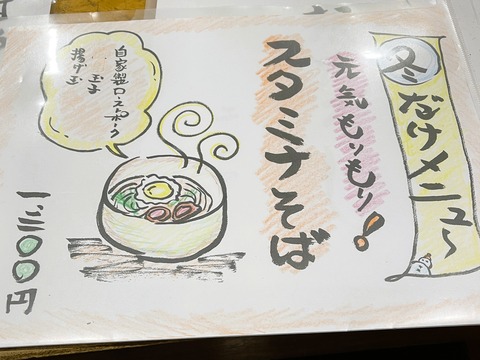 冬だけメニュ〜
元気もりもり!
スタミナそば
自家製ローストポーク
玉子
揚げ玉
一、三〇〇円